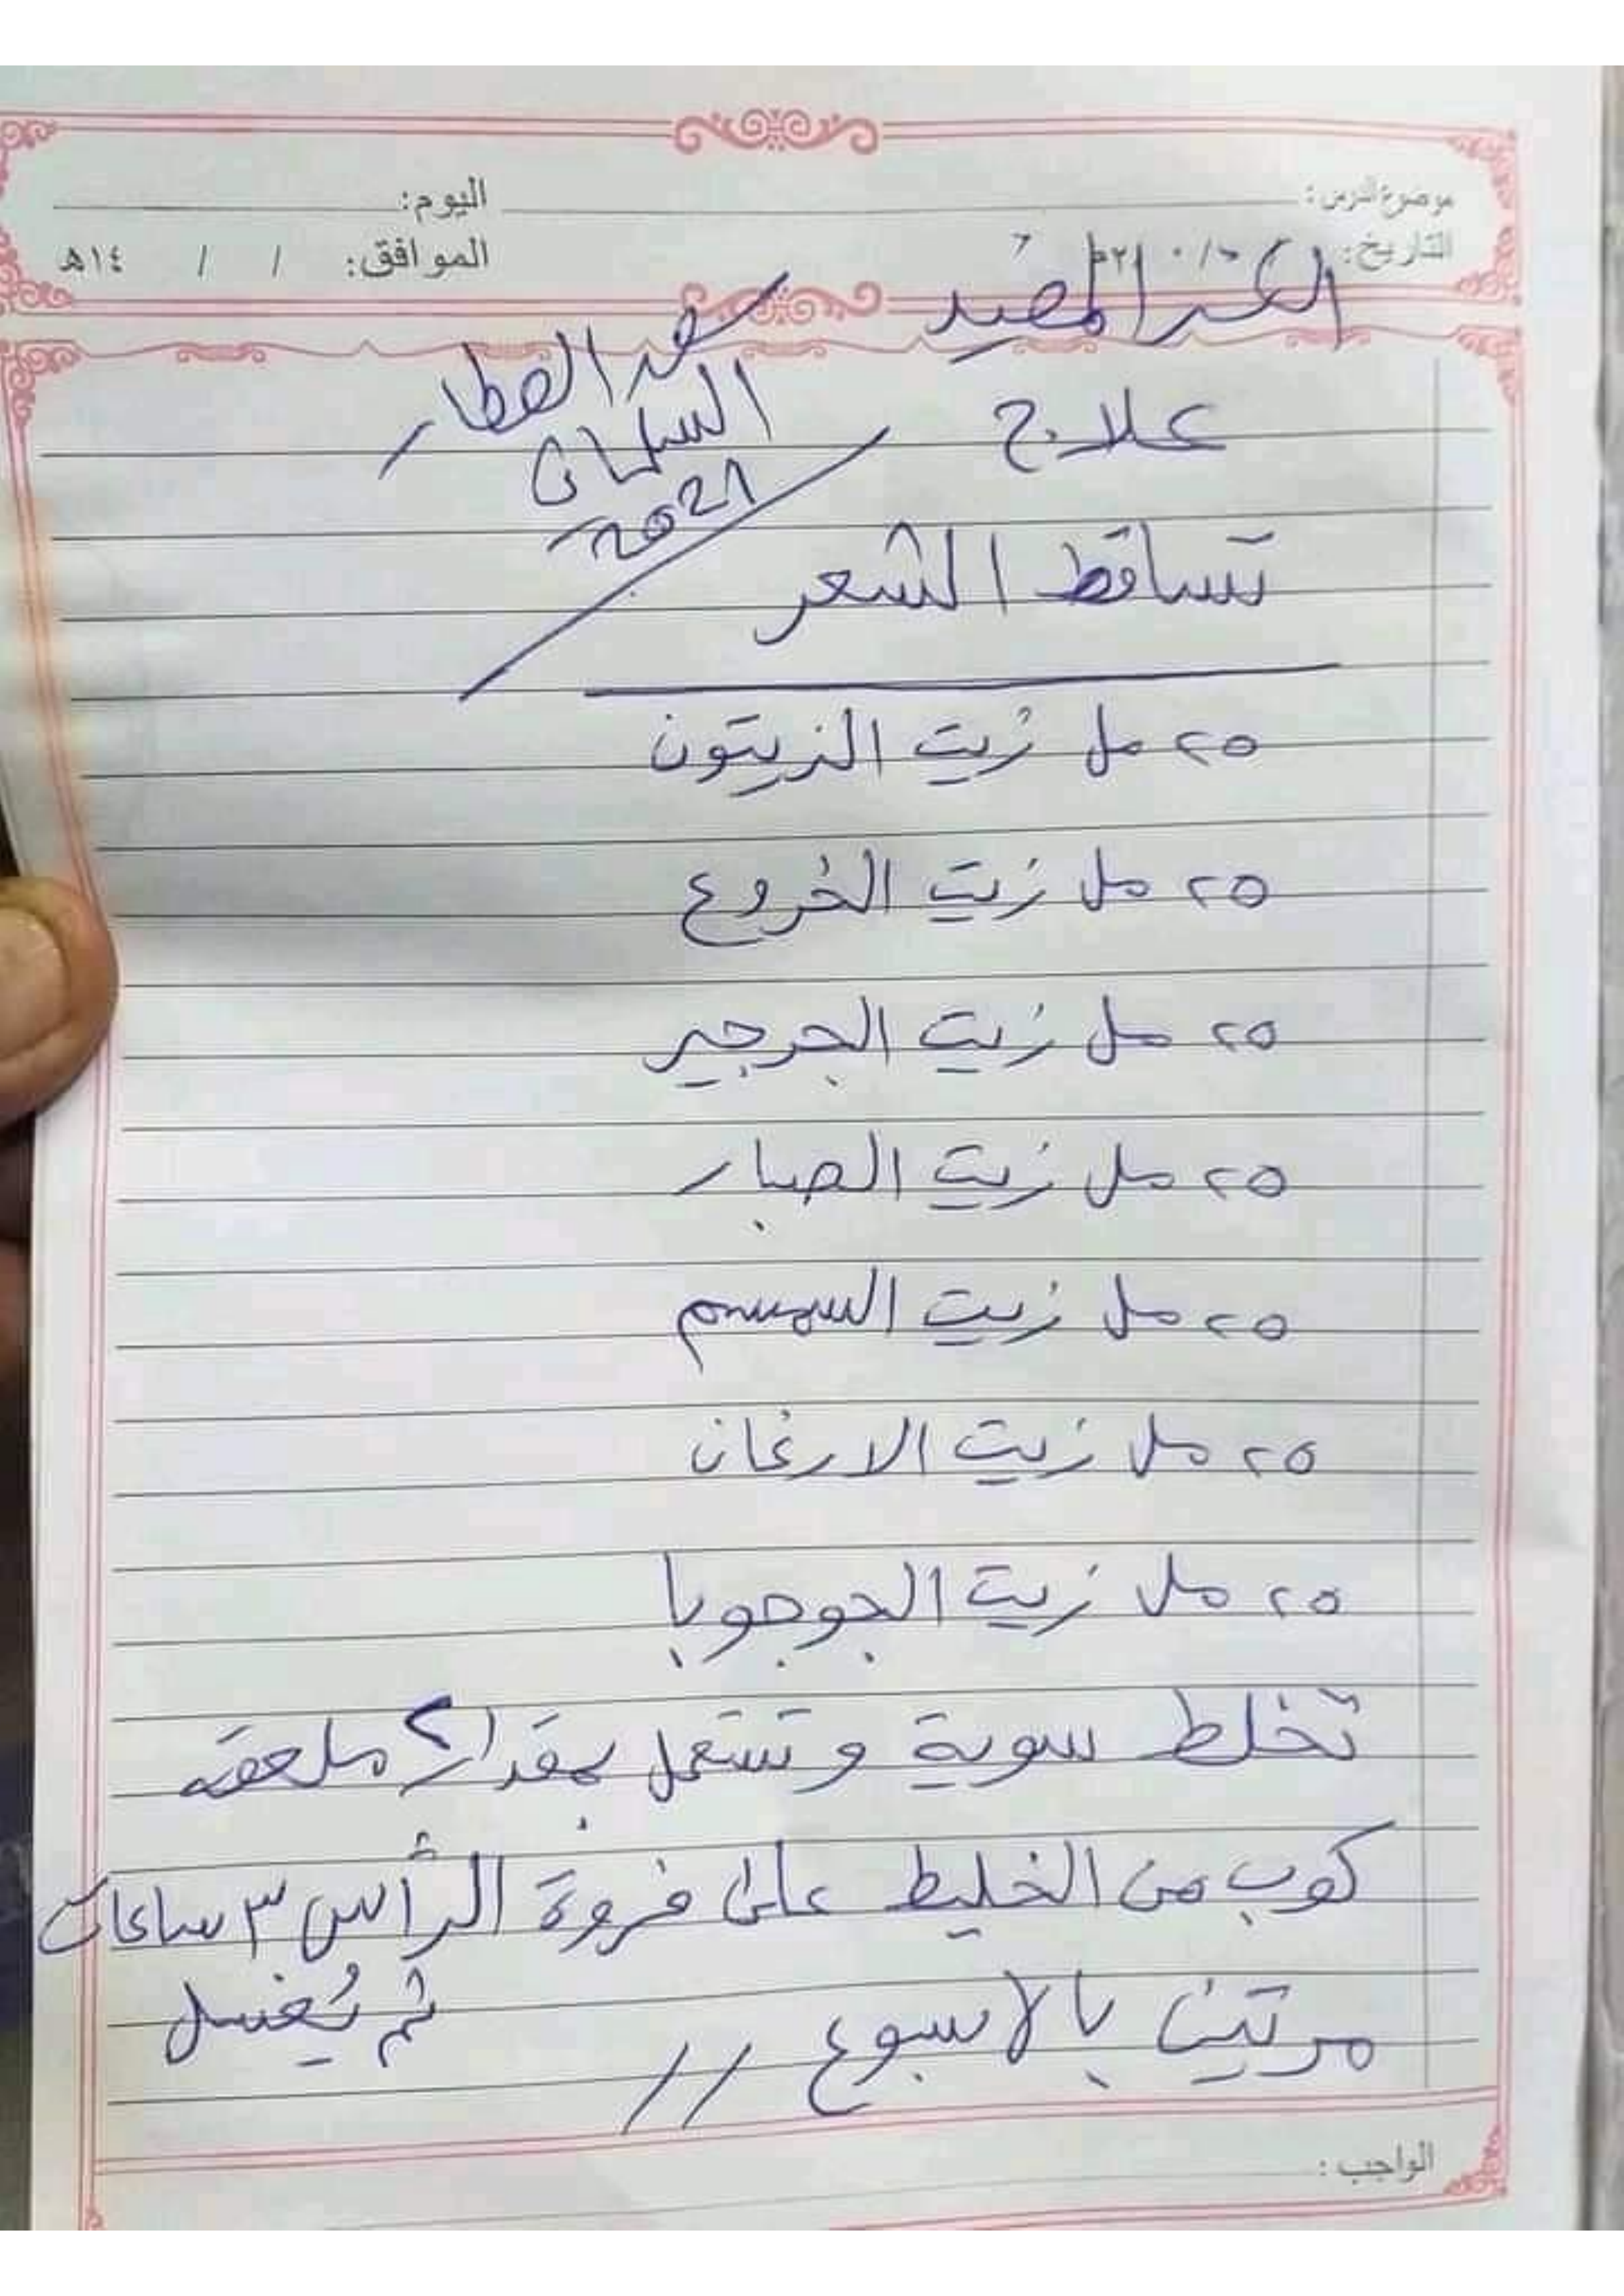 موضوع الدرس :
اليوم:
التاريخ:
الموافق: / / ١٤هـ
علاج
العطار
2021
تساقط الشعر
٢٥ مل زيت الزيتون
٢٥ مل زيت الخروع
٢٥ مل زيت الجرجير
٢٥ مل زيت الصبار
٢٥ مل زيت السمسم
٢٥ مل زيت الارغان
٢٥ مل زيت الجوجوبا
تخلط سوية وتستعمل بمقدار ٢ ملعقه
كوب من الخليط على فروة الرأس ٣ ساعات
مرتين بالاسبوع // ثم يُغسل
الواجب :